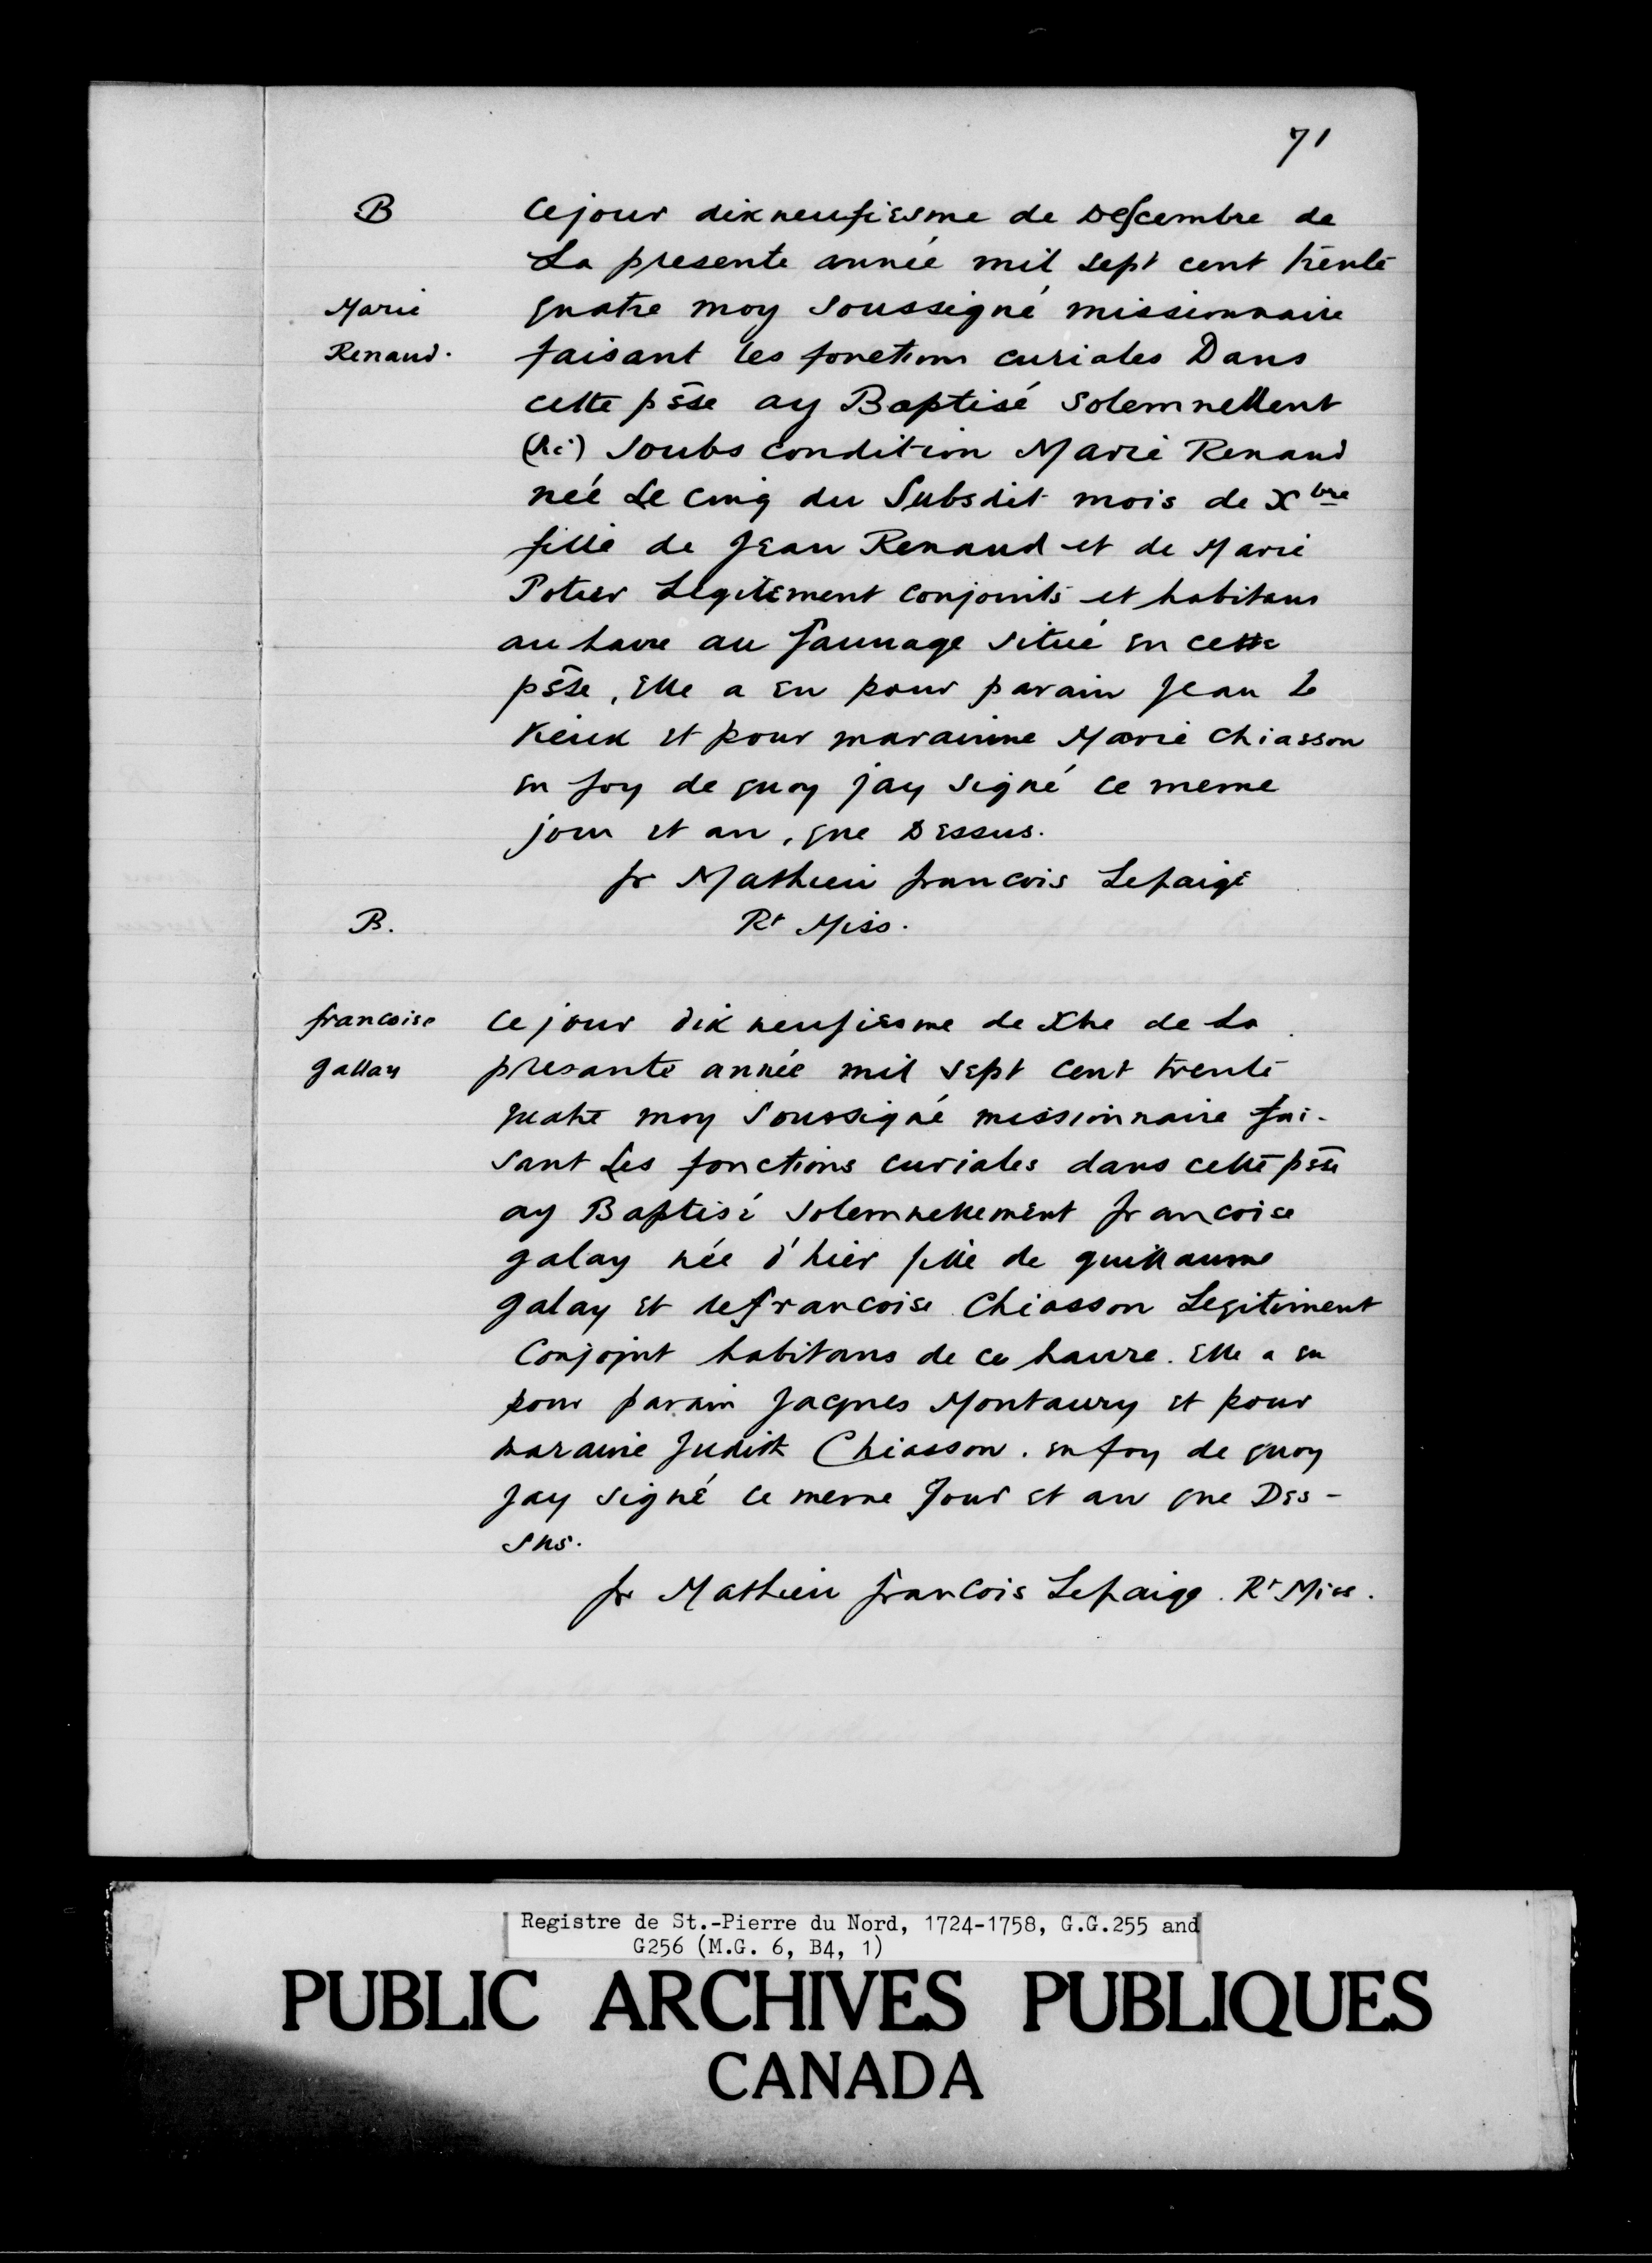 71
B
Ce jour dixneufiesme de Descembre de
La presente année mil sept cent trente
Marie
quatre moy soussigné missionnaire
Renaud.
faisant les fonctions curiales Dans
cette psse ay Baptisé solemnellent
(sic) soubs condition Marie Renaud
née Le cinq du Subsdit mois de Xbre
fille de Jean Renaud et de Marie
Potier Legitement conjoints et habitans
au havre au Saunage situé en cette
psse, Elle a eu pour parain Jean Le
Keiux et pour marainne Marie Chiasson
en foy de quoy jay signé ce meme
jour et an, que Dessus.
fr Mathieu francois Lepaige
B.
Rt Miss.
francoise
Ce jour dix neufiesme de Xbre de La
gallay
presante année mil sept cent trente
quatre moy soussigné missionnaire fai-
sant Les fonctions curiales dans cette psse
ay Baptisé solemnellement francoise
galay née d'hier fille de guillaume
galay et de francoise Chiasson Legitiment
Conjoint habitans de ce havre. Elle a eu
pour parain Jacques Montaury et pour
maraine Judith Chiasson. en foy de quoy
Jay signé ce meme Jour et an que Des-
sus.
fr Mathieu francois Lepaige. Rt Miss.
Registre de St.-Pierre du Nord, 1724-1758, G.G.255 and
G256 (M.G. 6, B4, 1)
PUBLIC ARCHIVES PUBLIQUES
CANADA